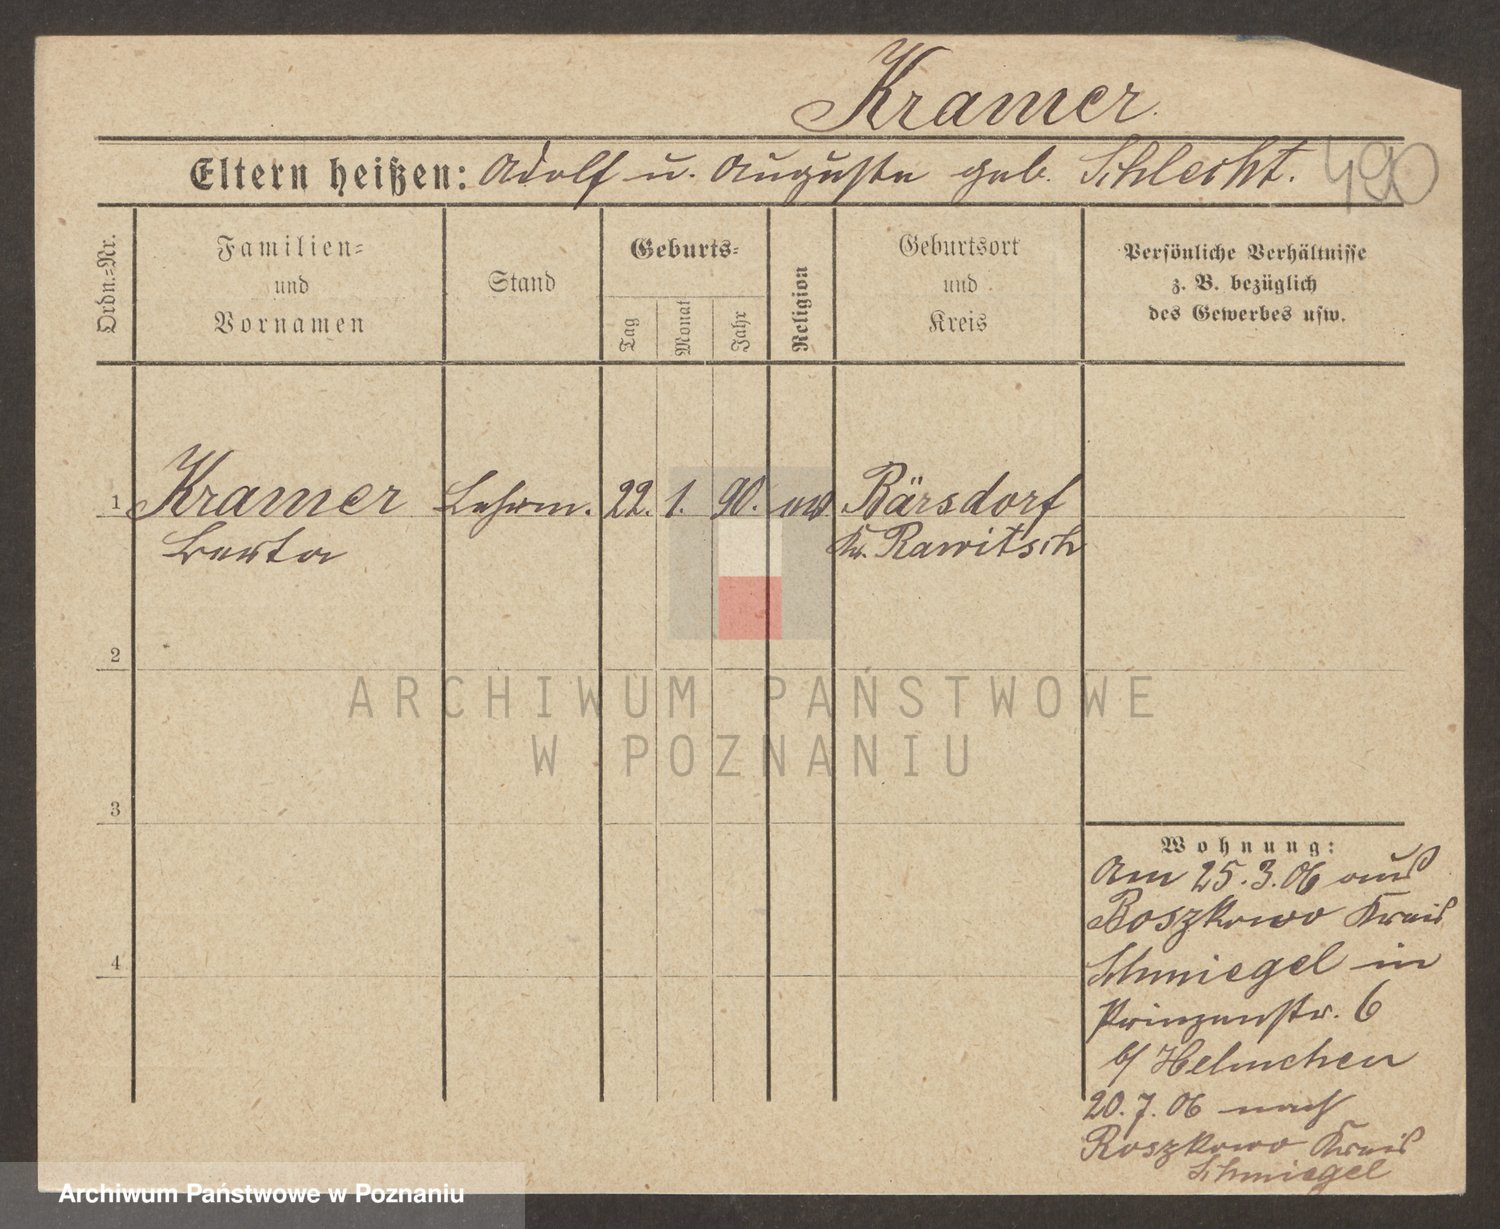 Kramer.
Eltern heißen: Adolf u. Auguste geb. Schlecht. 490
Ordn.-Nr.
Familien-
und
Vornamen
Stand
Geburts-
Tag
Monat
Jahr
Religion
Geburtsort
und
Kreis
Persönliche Verhältnisse
z. B. bezüglich
des Gewerbes usw.
1 Kramer Lehrm. 22. 1. 90. ev. Bärsdorf
Berta Kr. Rawitsch
2
ARCHIWUM PAŃSTWOWE
W POZNANIU
3
Wohnung:
Am 25.3.06 aus
Boszkowo Kreis
4
Schmiegel in
Prinzenstr. 6
b/ Helmchen
20.7.06 nach
Boszkowo Kreis
Schmiegel
Archiwum Państwowe w Poznaniu